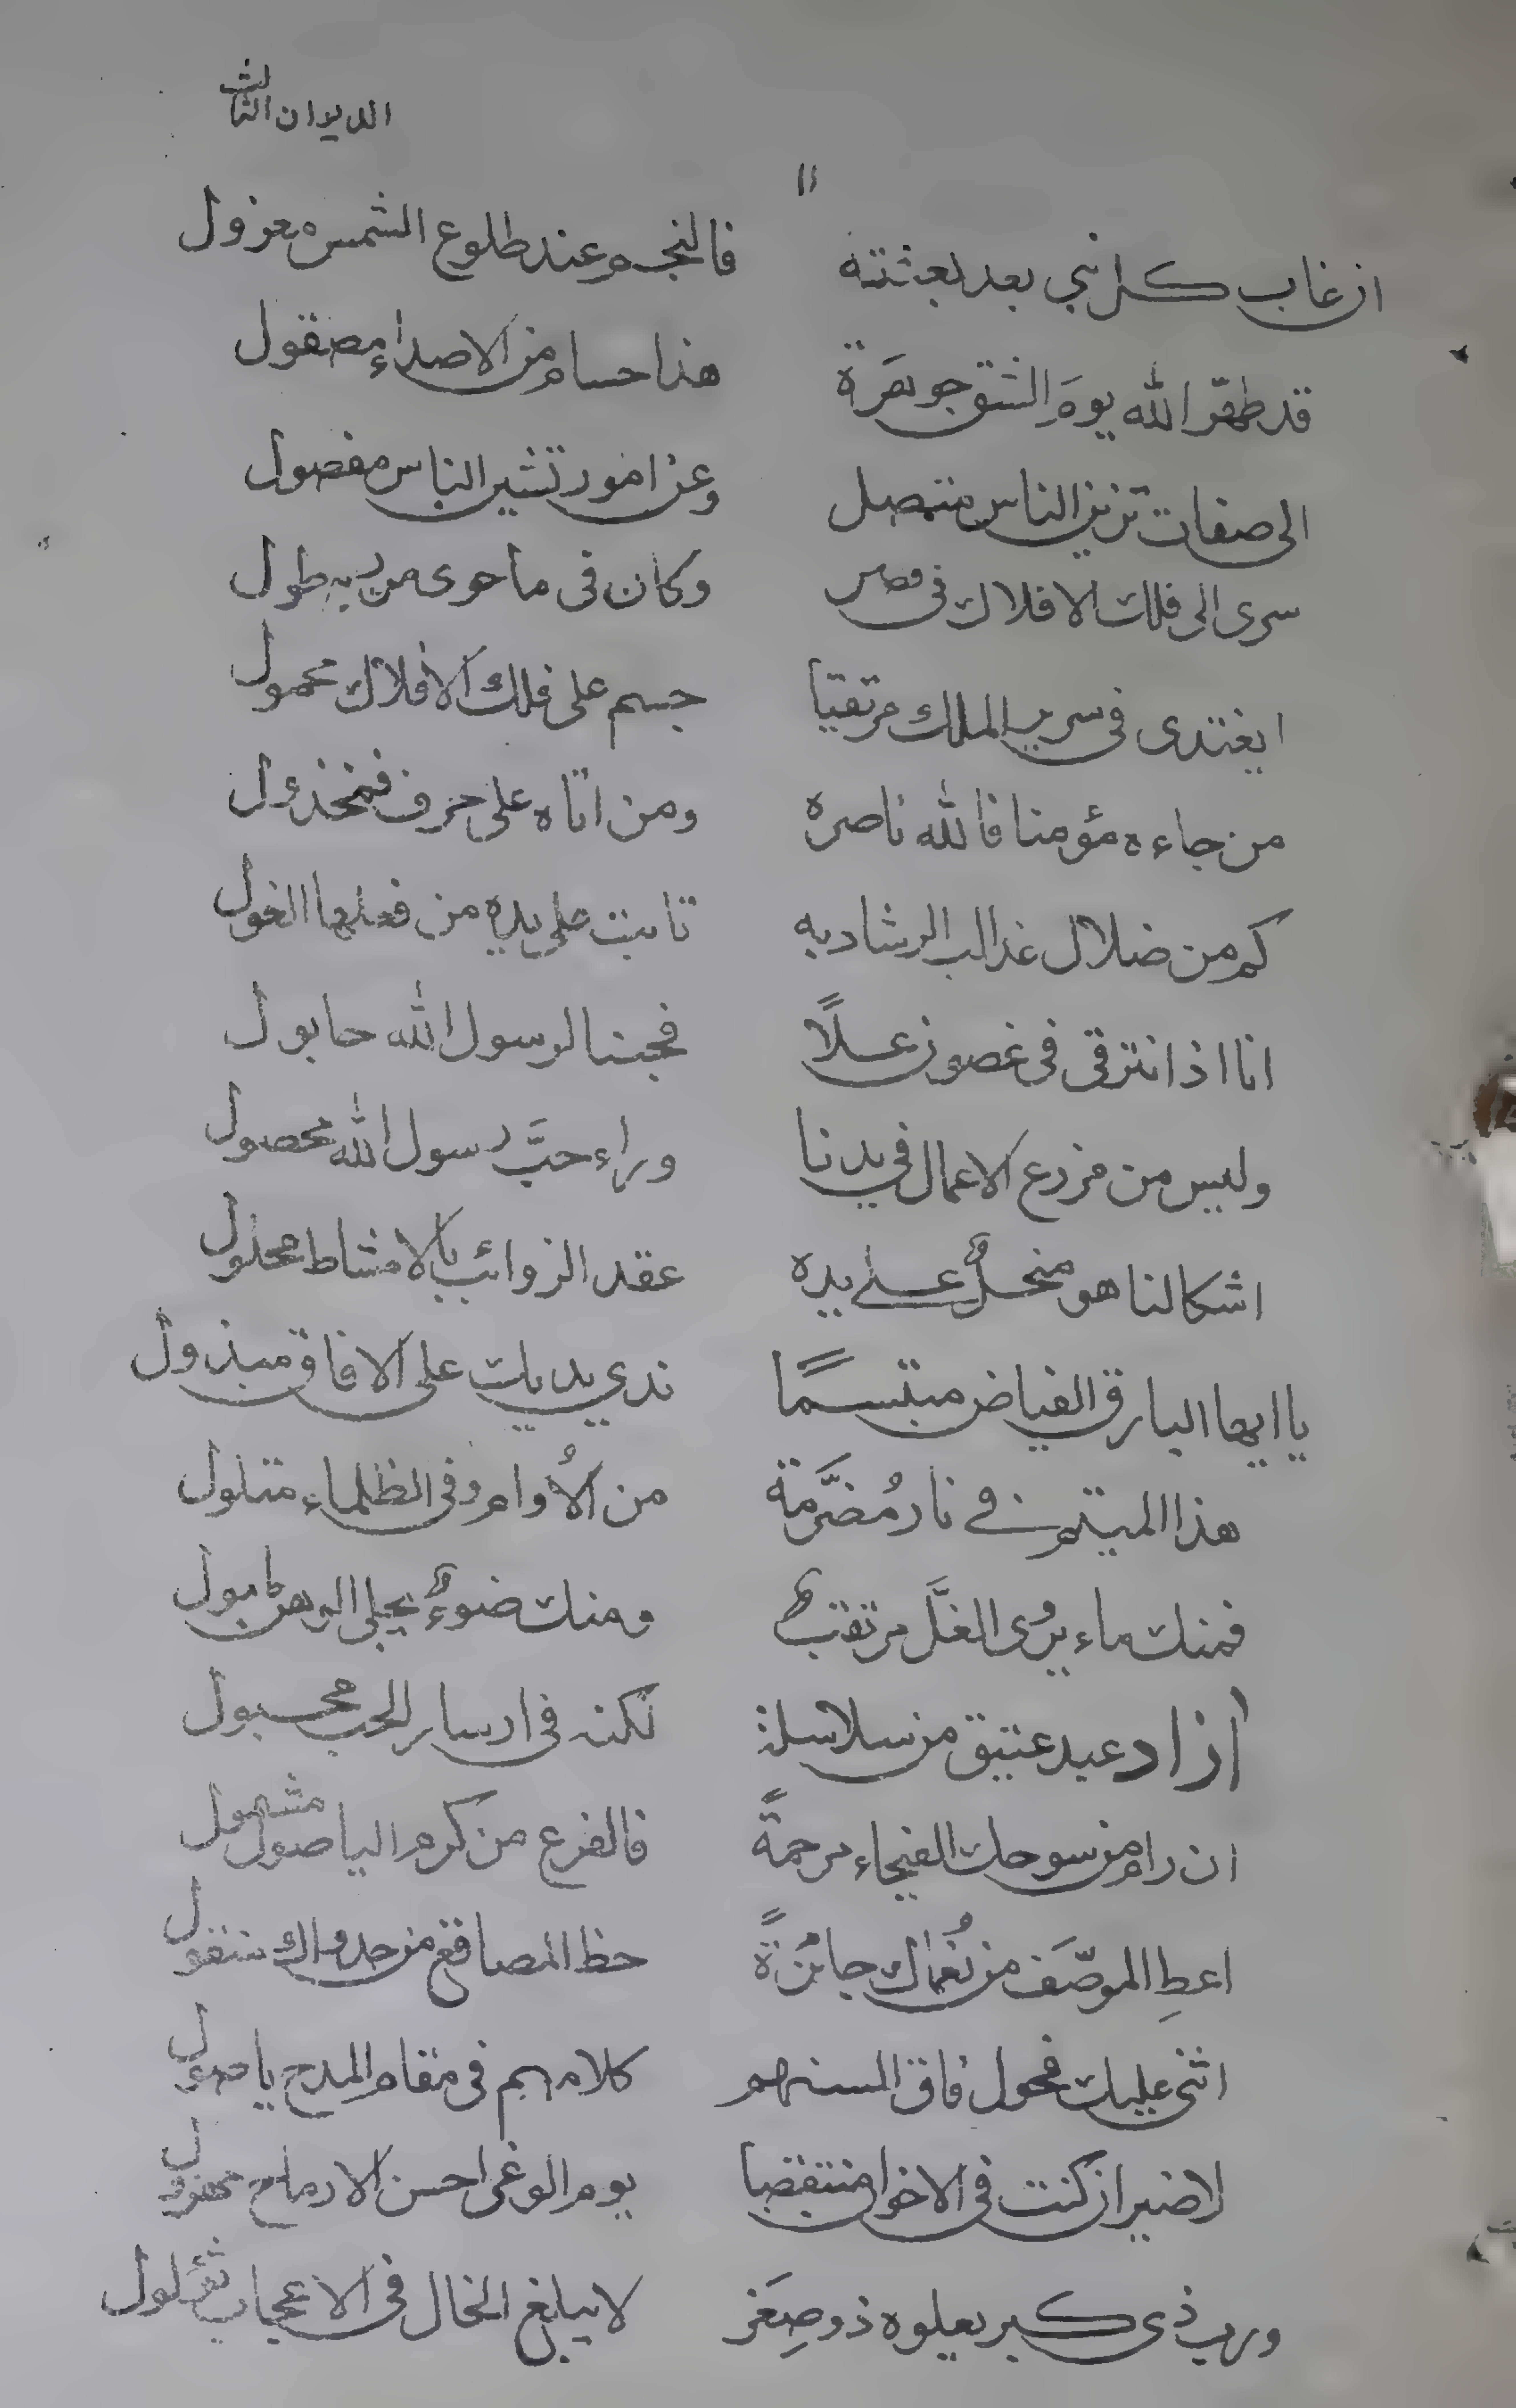 الديوان الثالث
۱۱
ان غاب كل نبي بعد بعثته فالنجم عند طلوع الشمس معزول
قد طهّر الله يومَ الشق جوهرَة هذا حسام من الاصداء مصقول
الى صفات تزين الناس متصل وعن امور تشين الناس مفصول
سرى الى فلك الافلاك فى قصر وكان فى ما حوى من ربه طول
ايغتدى فى سرير الملك مرتقيا جسم على فلك الافلاك محمول
من جاءه مؤمنا فالله ناصره ومن اتاه على حرف فمخذول
كم من ضلال غدا لب الرشاد به تابت على يديه من فعلها الغول
انا اذا نترقى فى غصون علاً فحبنا لرسول الله
وليس من مزرع الاعمال فى يدنا وراء حبَّ رسول الله محصول
اشكالنا هو منحلٌ على يده عقد الذوائب بالامشاط محلول
يا ايها البارق الفياض مبتسمًا ندى يديك على الافاق مبذول
هذا المتيم فى نار مُضَرَّمة من الأُوام وفى الظلماء متلول
فمنك ماء يُروى الغلَّ مرتقب ومنك ضوءٌ يجلى
آزاد عبد عتيق من سلاسله لكنه فى اسار الحب محبول
ان رام من سوحك الفيحاء مرحمةً فالفرع من كرم الياصول مشمول
اعطِ الموصّف من نُعماك جائزةً حظ المصاقع من جدواك منقول
اثنى عليك فحول فاق السنهم كلامهم فى مقام المدح ياصول
لا ضير ان كنت فى الاخوان منتقضا يوم الوغى احسن الارماح
ورب ذى كبر يعلوه ذو صِغَر لا يبلغ الخال فى الاعجاب ثؤلول